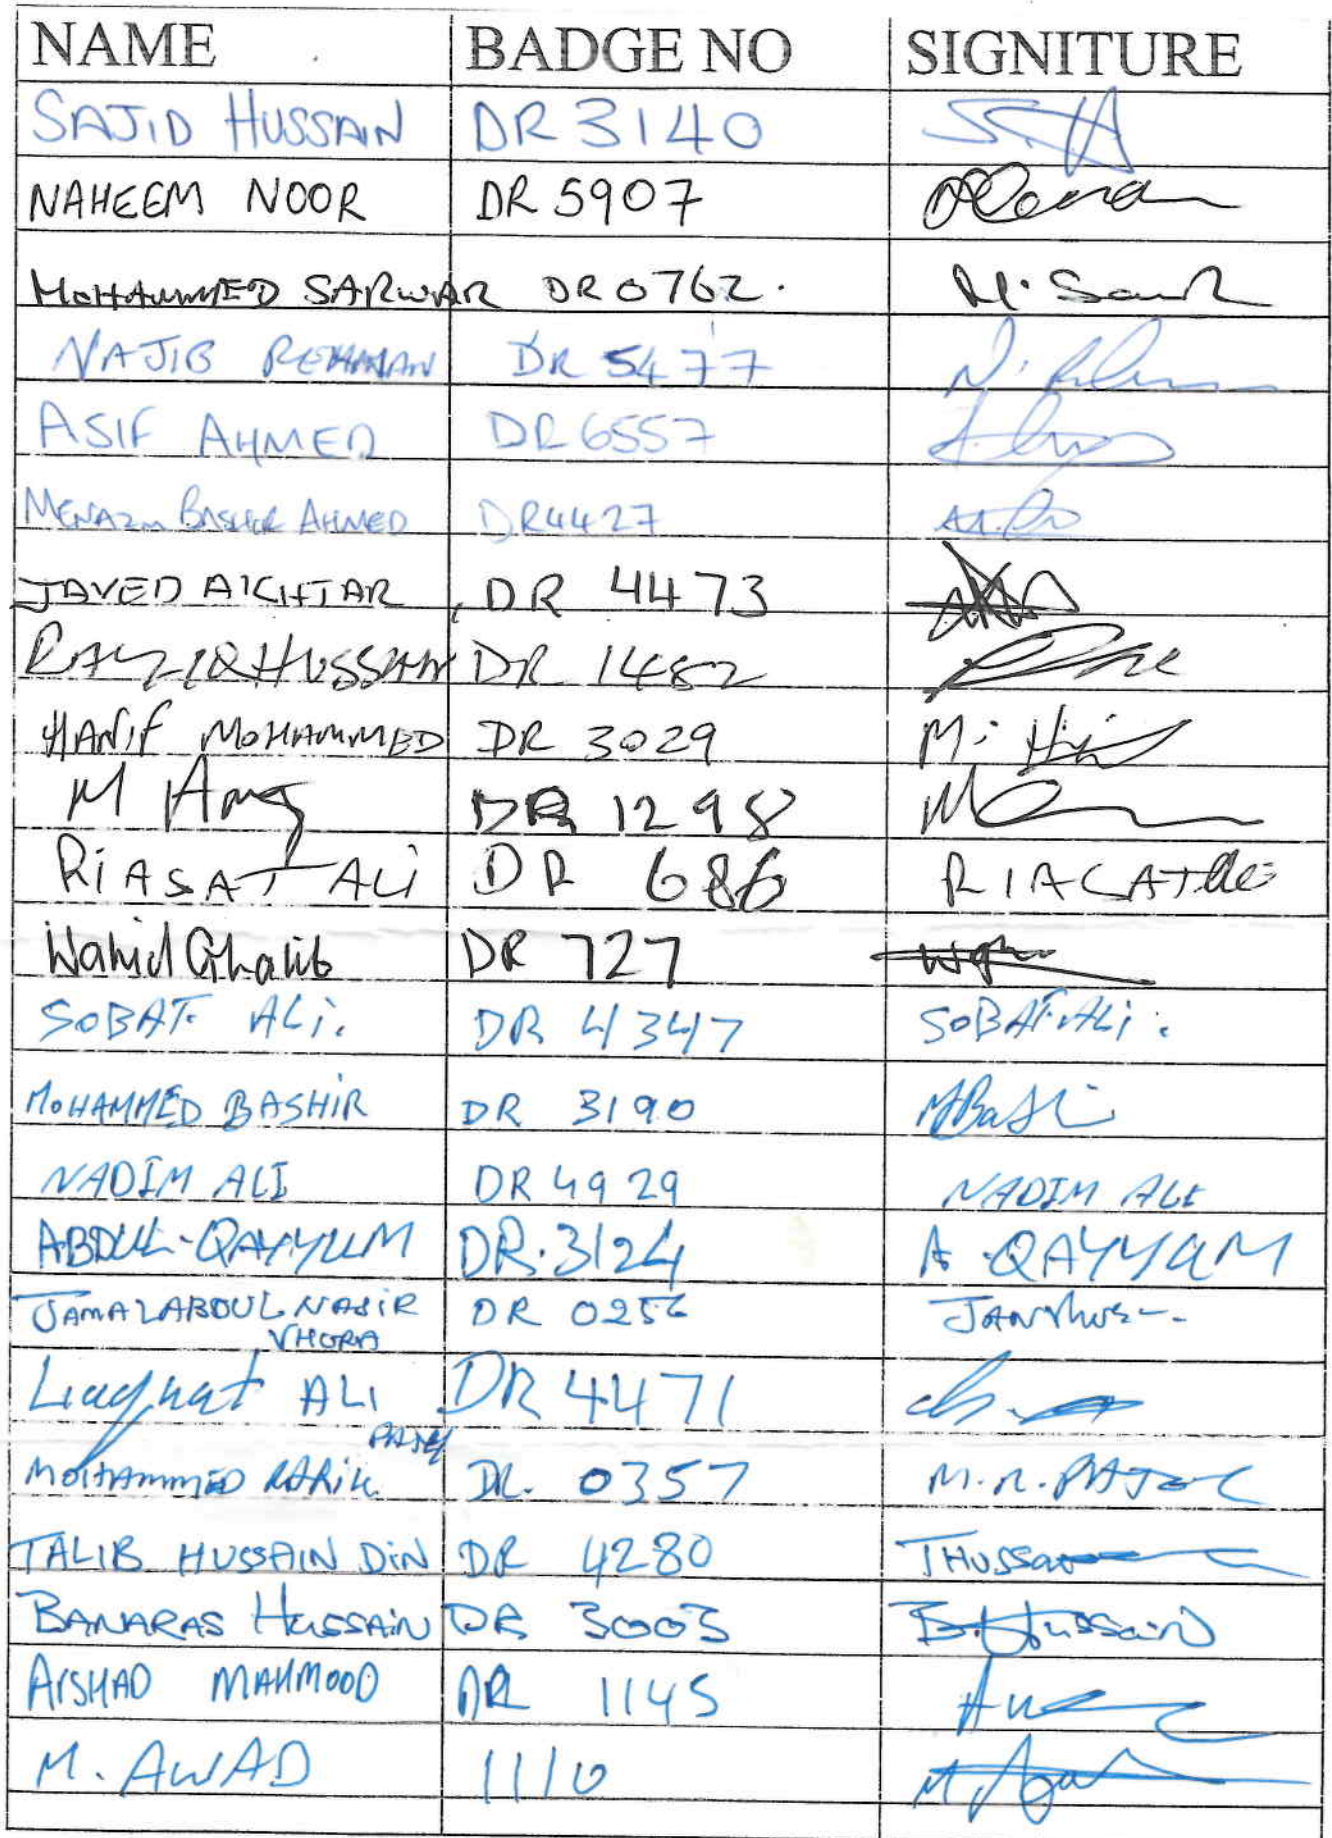 NAME BADGE NO SIGNITURE
SAJID HUSSAIN DR 3140 S.H
NAHEEM NOOR DR 5907
MOHAMMED SARWAR DR 0762. M. Sarwar
NAJIB REHMAN DR 5477 N. Rehman
ASIF AHMED DR 6557
BASHIR AHMED DR4427
JAVED AKHTAR DR 4473
HUSSAIN DR 1482
HANIF MOHAMMED DR 3029
M DR 1298
RIASAT ALI DR 686
Wahid Ghalib DR 727
SOBAT. ALi. DR 4347 SOBAT.ALi.
MOHAMMED BASHIR DR 3190 MBashi
NADIM ALI DR 4929 NADIM ALI
ABDUL-QAYYUM DR.3124 A.QAYYUM
JAMALABDULNASIR DR 0256
VHORA
Liaqhat ALI DR 4471
PATEL
MOHAMMED RAFIK DR. 0357 M.R.PATEL
TALIB HUSSAIN DIN DR 4280 THussain
BANARAS HUSSAIN DR 3003 B.Hussain
ARSHAD MAHMOOD DR 1145
M. AWAD 1110